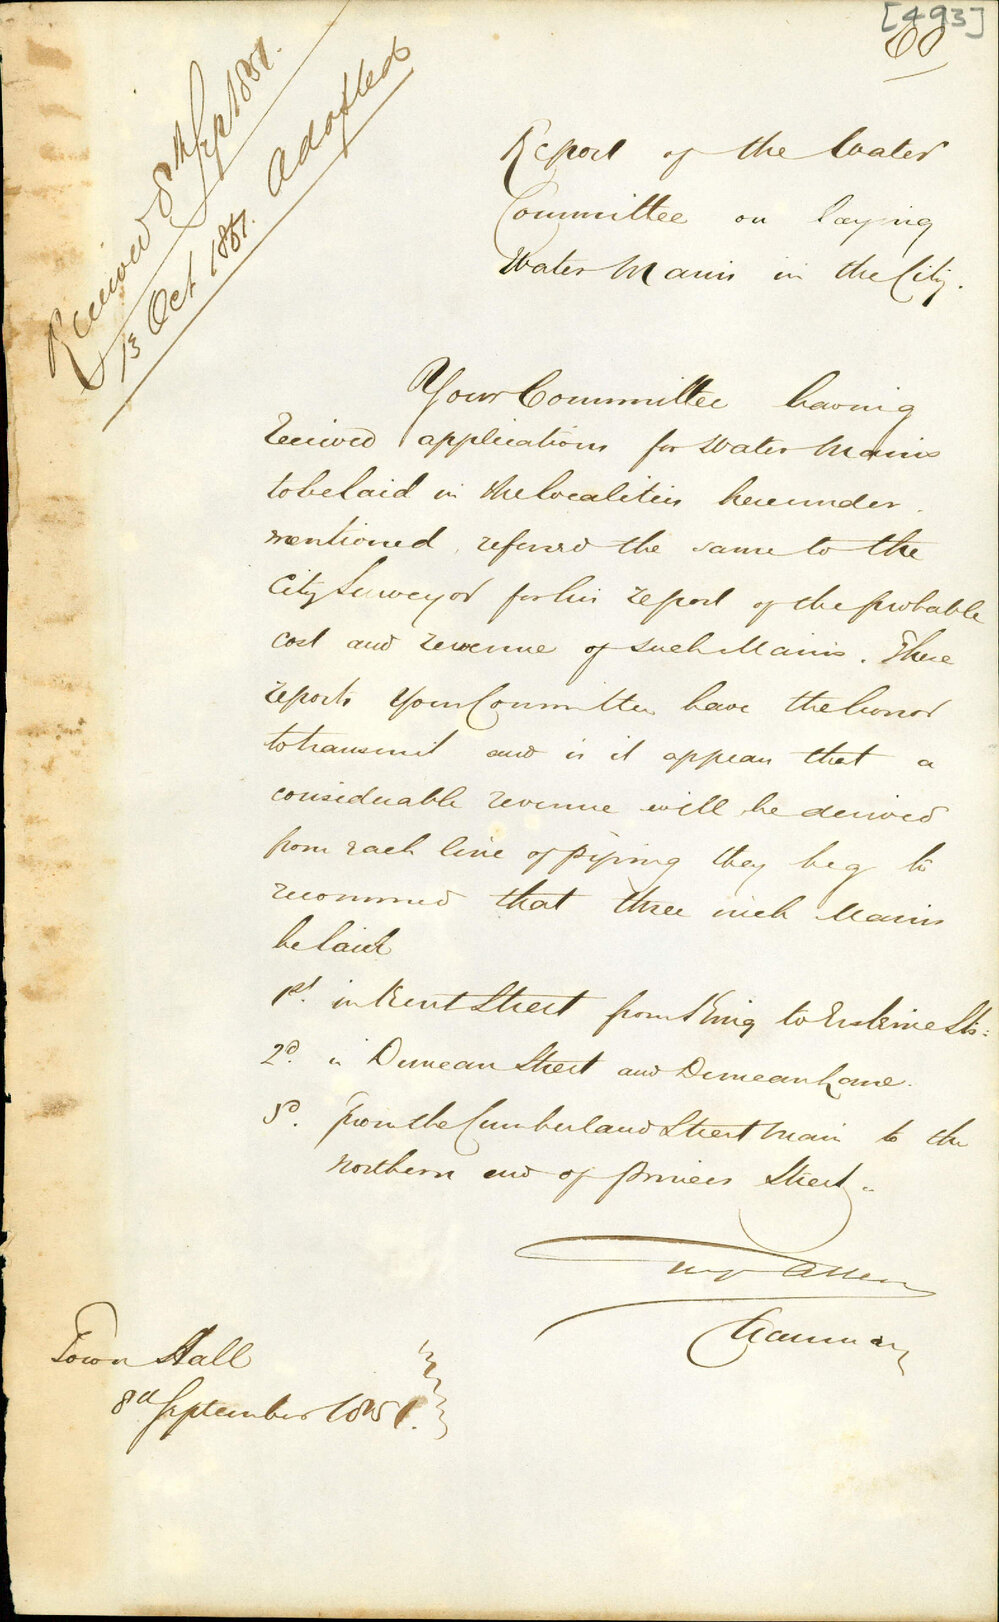 [493]
60
Received 8th Sep 1851.
13 Oct 1851. Adopted
Report of the Water
Committee on laying
Water Mains in the City.
Your Committee having
received applications for Water Mains
to be laid in the localities hereunder
mentioned, referred the same to the
City Surveyor for his report of the probable
cost and revenue of such Mains. These
reports Your Committee have the honor
to transmit and as it appears that a
considerable revenue will be derived
from each line of piping they beg to
recommend that three inch Mains
be laid
1st. in Kent Street from King to Erskine Sts:
2d. in Duncan Street and Duncan Lane.
3d. From the Cumberland Street Main to the
northern end of Princes Street.
Allen
Chairman
Town Hall
8th September 1851.